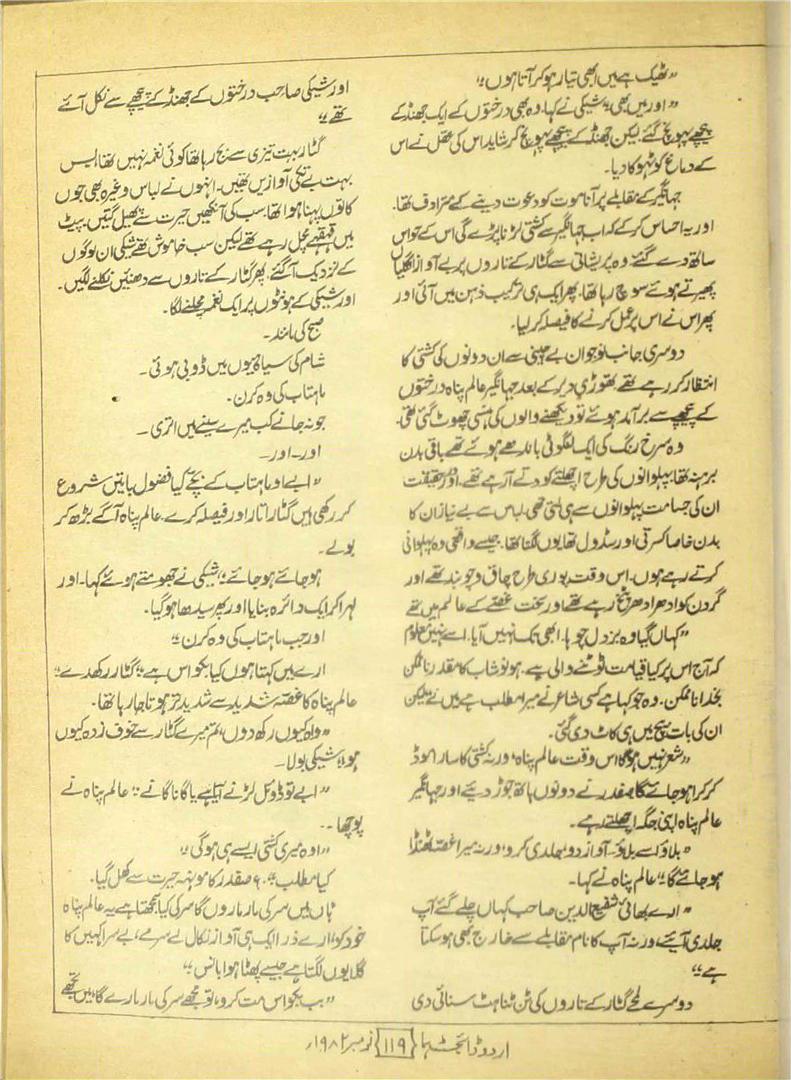 ”ٹھیک ہے میں ابھی تیار ہو کر آتا ہوں“
”اور میں بھی“ شیکی نے کہا، وہ بھی درختوں کے ایک جھنڈ کے
پیچھے پہونچ گئے لیکن جھنڈ کے پیچھے پہونچ کر شاید اس کی عقل نے اس
کے دماغ کو ٹہوکا دیا۔
جہانگیر کے مقابلے پر آنا موت کو دعوت دینے کے مترادف تھا۔
اور یہ احساس کر کے کہ اب جہانگیر سے کشتی لڑنا پڑے گی اس کے حواس
ساتھ دے گئے۔ وہ پریشانی سے گٹار کے تاروں پر بے آواز انگلیاں
پھیرتے ہوئے سوچ رہا تھا۔ پھر ایک ہی ترکیب ذہن میں آئی اور
پھر اس نے اس پر عمل کرنے کا فیصلہ کر لیا۔
دوسری جانب نوجوان بے چینی سے ان دونوں کی کشتی کا
انتظار کر رہے تھے۔ تھوڑی دیر کے بعد جہانگیر عالم پناہ درختوں
کے پیچھے سے برآمد ہوئے تو دیکھنے والوں کی ہنسی چھوٹ گئی تھی۔
وہ سرخ رنگ کی ایک لنگوٹی باندھے ہوئے تھے باقی بدن
برہنہ تھا۔ پہلوانوں کی طرح اچھلتے کودتے آ رہے تھے۔ اور حقیقت
ان کی جسامت پہلوانوں سے ہی ملتی تھی۔ لباس سے بے نیاز ان کا
بدن خاصا کسرتی اور سڈول تھا یوں لگتا تھا۔ جیسے واقعی وہ پہلوانی
کرتے رہے ہوں۔ اس وقت پوری طرح چاق و چوبند تھے اور
گردن کو ادھر ادھر پٹخ رہے تھے اور سخت غصے کے عالم میں تھے
”کہاں گیا وہ بزدل چوہا۔ ابھی تک نہیں آیا۔ اسے نہیں معلوم
کہ آج اس پر کیا قیامت ٹوٹنے والی ہے۔ ہو نوشاب کا مقدر ناممکن
بخدا ناممکن۔ وہ جو کہا ہے کسی شاعر نے میرا مطلب ہے میں نے لیکن
ان کی بات بیچ میں ہی کاٹ دی گئی۔
”شعر نہیں ہوگا اس وقت عالم پناہ، ورنہ کشتی کا سارا موڈ
کرکرا ہو جائے گا صفدر نے دونوں ہاتھ جوڑ دیئے اور جہانگیر
عالم پناہ اپنی جگہ اچھلتے رہے۔
”بلاؤ اسے بلاؤ۔ آواز دو، جلدی کرو، ورنہ میرا غصہ ٹھنڈا
ہو جائے گا“ عالم پناہ نے کہا۔
”ارے بھائی شفیع الدین صاحب کہاں چلے گئے آپ
جلدی آیئے، ورنہ آپ کا نام مقابلے سے خارج بھی ہو سکتا
ہے“
دوسرے لمحے گٹار کے تاروں کی ٹن ٹناہٹ سنائی دی
اور شیکی صاحب درختوں کے جھنڈ کے پیچھے سے نکل آئے
تھے“
گٹار بہت تیزی سے بج رہا تھا کوئی نغمہ نہیں تھا، بس
بہت بے تکی آوازیں تھیں۔ انہوں نے لباس وغیرہ بھی جوں
کا توں پہنا ہوا تھا۔ سب کی آنکھیں حیرت سے پھیل گئیں۔ پیٹ
میں قہقہے مچل رہے تھے لیکن سب خاموش تھے شیکی ان لوگوں
کے نزدیک آ گئے۔ پھر گٹار کے تاروں سے دھنیں نکلنے لگیں۔
اور شیکی کے ہونٹوں پر ایک نغمہ مچلنے لگا۔
صبح کی مانند۔
شام کی سیاہیوں میں ڈوبی ہوئی۔
ماہتاب کی وہ کرن۔
جو نہ جانے کب میرے سینے میں اتری۔
اور - اور۔
”ابے او ماہتاب کے بچے کیا فضول باتیں شروع
کر رکھی ہیں گٹار اتار اور فیصلہ کر لے۔ عالم پناہ آگے بڑھ کر
بولے۔
ہو جائے ہو جائے“ شیکی نے جھومتے ہوئے کہا۔ اور
لہرا کر ایک دائرہ بنایا اور پھر سیدھا ہو گیا۔
اور جب ماہتاب کی وہ کرن“
ارے میں کہتا ہوں کیا بکواس ہے“ گٹار رکھدے“
عالم پناہ کا غصہ شدید سے شدید تر ہوتا جا رہا تھا۔
”واہ کیوں رکھ دوں، تم میرے گٹار سے خوف زدہ کیوں
ہو“ شیکی بولا۔
”ابے تو ڈوئل لڑنے آیا ہے یا گانا گانے“ عالم پناہ نے
پوچھا۔
”اوہ میری کشتی ایسے ہی ہوگی“
کیا مطلب“؟ صفدر کا مونہہ حیرت سے کھل گیا۔
ہاں میں سر کی مار ماروں گا سر کی کیا سمجھتا ہے یہ عالم پناہ
خود کو، ارے ذرا ایک ہی آواز نکال لے سر میں، بے سرا کہیں کا
گلا یوں لگتا ہے جیسے پھٹا ہوا بانس“
”بب بکواس مت کرو، تو مجھے سر کی مار مارے گا، میں تجھے
اردو ڈائجسٹ ہما {۱۱۹} نومبر ۱۹۸۲ء